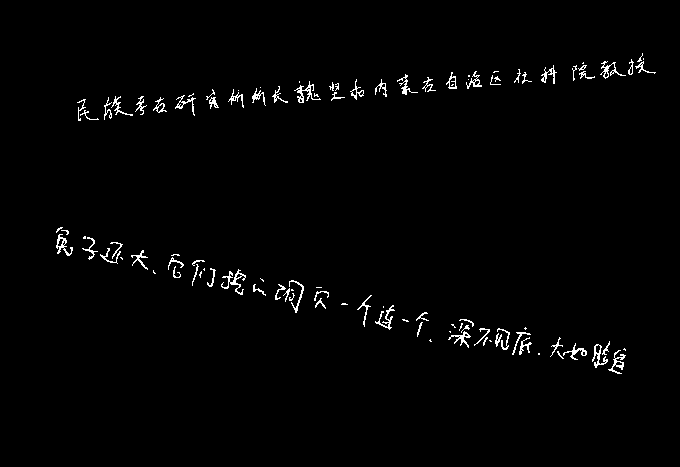 民族考古研究所所长魏坚和内蒙古自治区社科院教授
兔子还大、它们挖的洞穴一个连一个、深不见底、大如脸盆